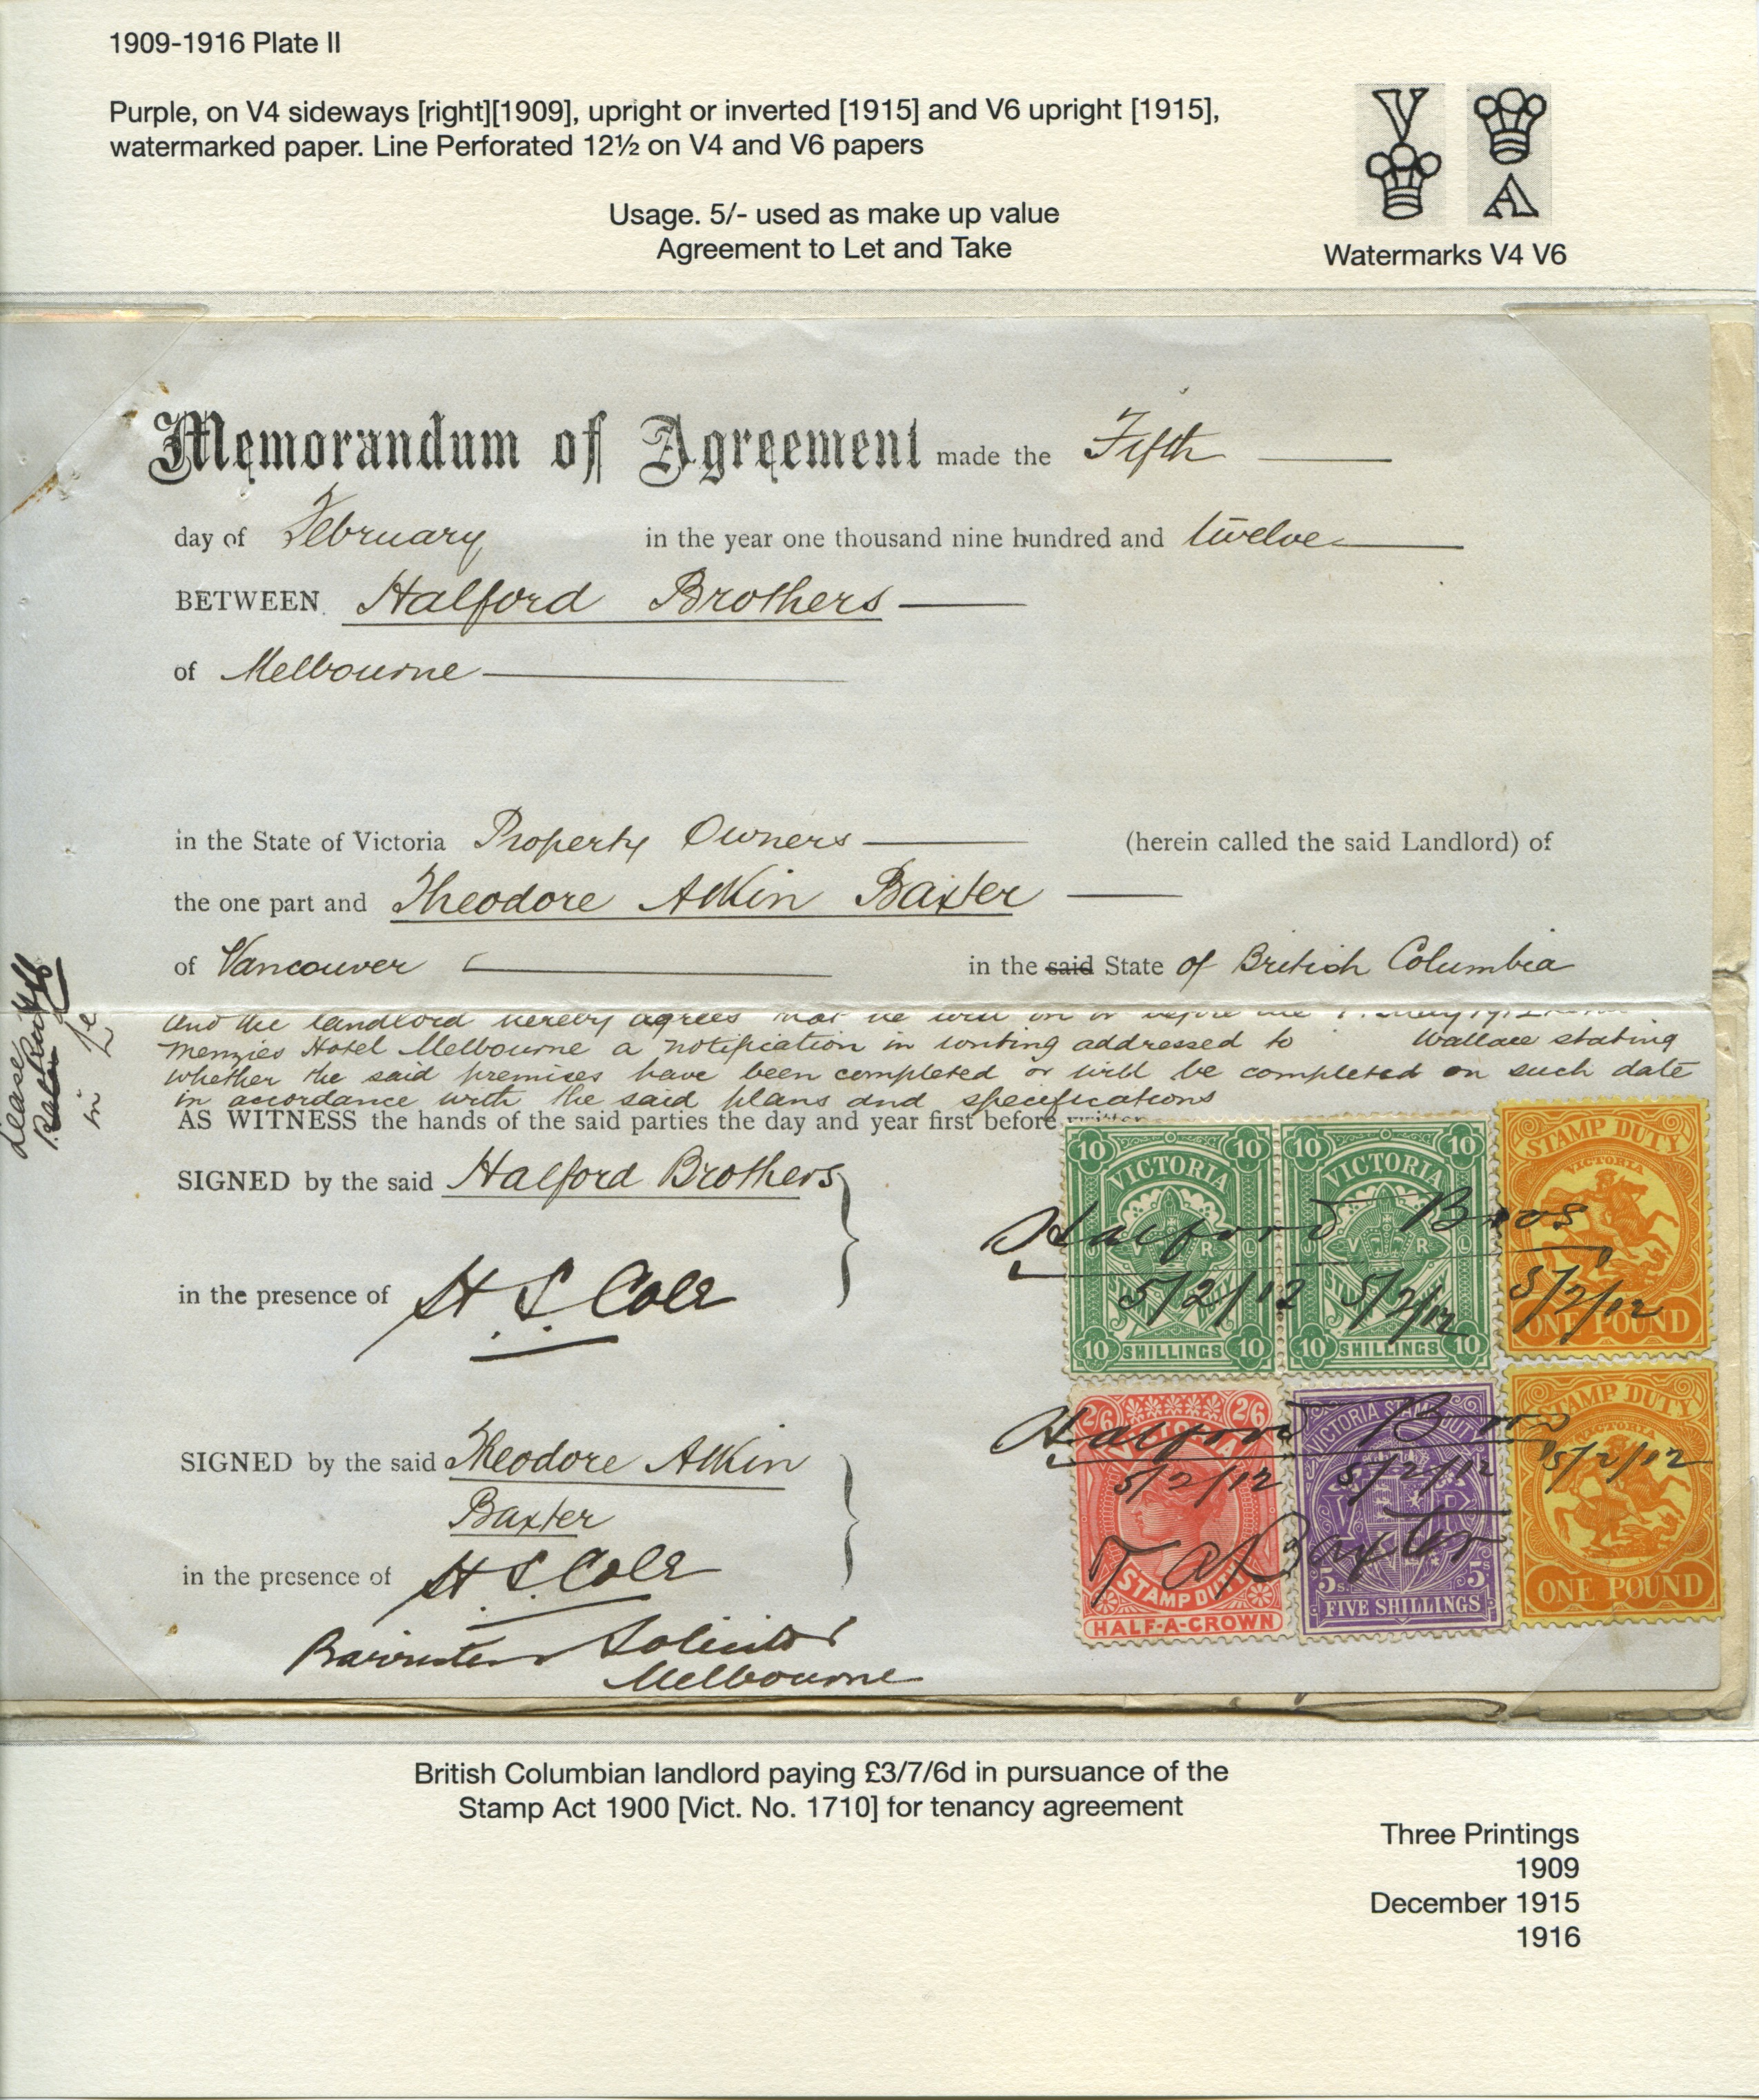 1909-1916 Plate II
Purple, on V4 sideways [right][1909], upright or inverted [1915] and V6 upright [1915],
watermarked paper. Line Perforated 12½ on V4 and V6 papers
Usage. 5/- used as make up value
Agreement to Let and Take
V
A
Watermarks V4 V6
Memorandum of Agreement made the Fifth
day of February in the year one thousand nine hundred and twelve
BETWEEN Halford Brothers
of Melbourne
in the State of Victoria Property Owners (herein called the said Landlord) of
the one part and Theodore Atkin Baxter
of Vancouver in the said State of British Columbia
Lease
in
and the landlord hereby agrees that he will on or before the
Menzies Hotel Melbourne a notification in writing addressed to Wallace stating
whether the said premises have been completed or will be completed on such date
in accordance with the said plans and specifications
AS WITNESS the hands of the said parties the day and year first before written
SIGNED by the said Halford Brothers
in the presence of H. S. Cole
SIGNED by the said Theodore Atkin
Baxter
in the presence of H. S. Cole
Barrister Solicitor
Melbourne
10 10
VICTORIA
V R
10 SHILLINGS 10
10 10
VICTORIA
V R
10 SHILLINGS 10
STAMP DUTY
VICTORIA
ONE POUND
Halford Bros
5/2/12 5/2/12 5/2/12
2/6 2/6
VICTORIA
STAMP DUTY
HALF-A-CROWN
VICTORIA STAMP DUTY
5s. 5s.
FIVE SHILLINGS
STAMP DUTY
VICTORIA
ONE POUND
Halford Bros
5/2/12 5/2/12 5/2/12
T A Baxter
British Columbian landlord paying £3/7/6d in pursuance of the
Stamp Act 1900 [Vict. No. 1710] for tenancy agreement
Three Printings
1909
December 1915
1916